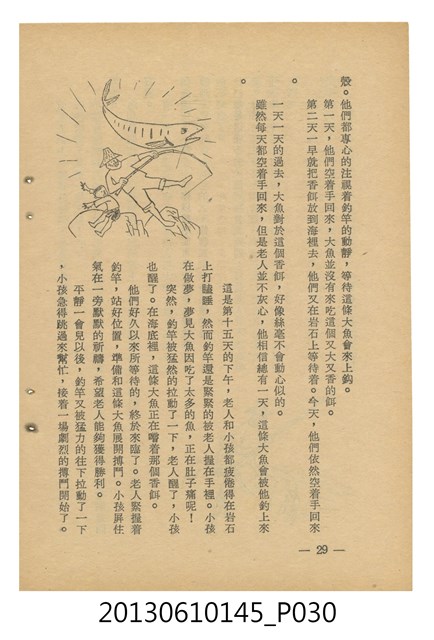 殼。他們都專心的注視着釣竿的動靜，等待這條大魚會來上鈎。
第一天，他們空着手回來，大魚並沒有來吃這個又大又香的餌。
第二天一早就把香餌放到海裡去，他們又在岩石上等待着。今天，他們依然空着手回來
。
一天一天的過去，大魚對於這個香餌，好像絲毫不會動心似的。
雖然每天都空着手回來，但是老人並不灰心，他相信總有一天，這條大魚會被他釣上來
。
這是第十五天的下午，老人和小孩都疲倦得在岩石
上打瞌睡，然而釣竿還是緊緊的被老人握在手裡。小孩
在做夢，夢見大魚因吃了太多的魚，正在肚子痛呢！
突然，釣竿被猛然的拉動了一下，老人醒了，小孩
也醒了。在海底裡，這條大魚正在嚼着那個香餌。
他們好久以來所等待的，終於來臨了。老人緊握着
釣竿，站好位置，準備和這條大魚展開搏鬥。小孩屏住
氣在一旁默默的祈禱，希望老人能夠獲得勝利。
平靜一會兒以後，釣竿又被猛力的往下拉動了一下
，小孩急得跳過來幫忙，接着一場劇烈的搏鬥開始了。
— 29 —
20130610145_P030